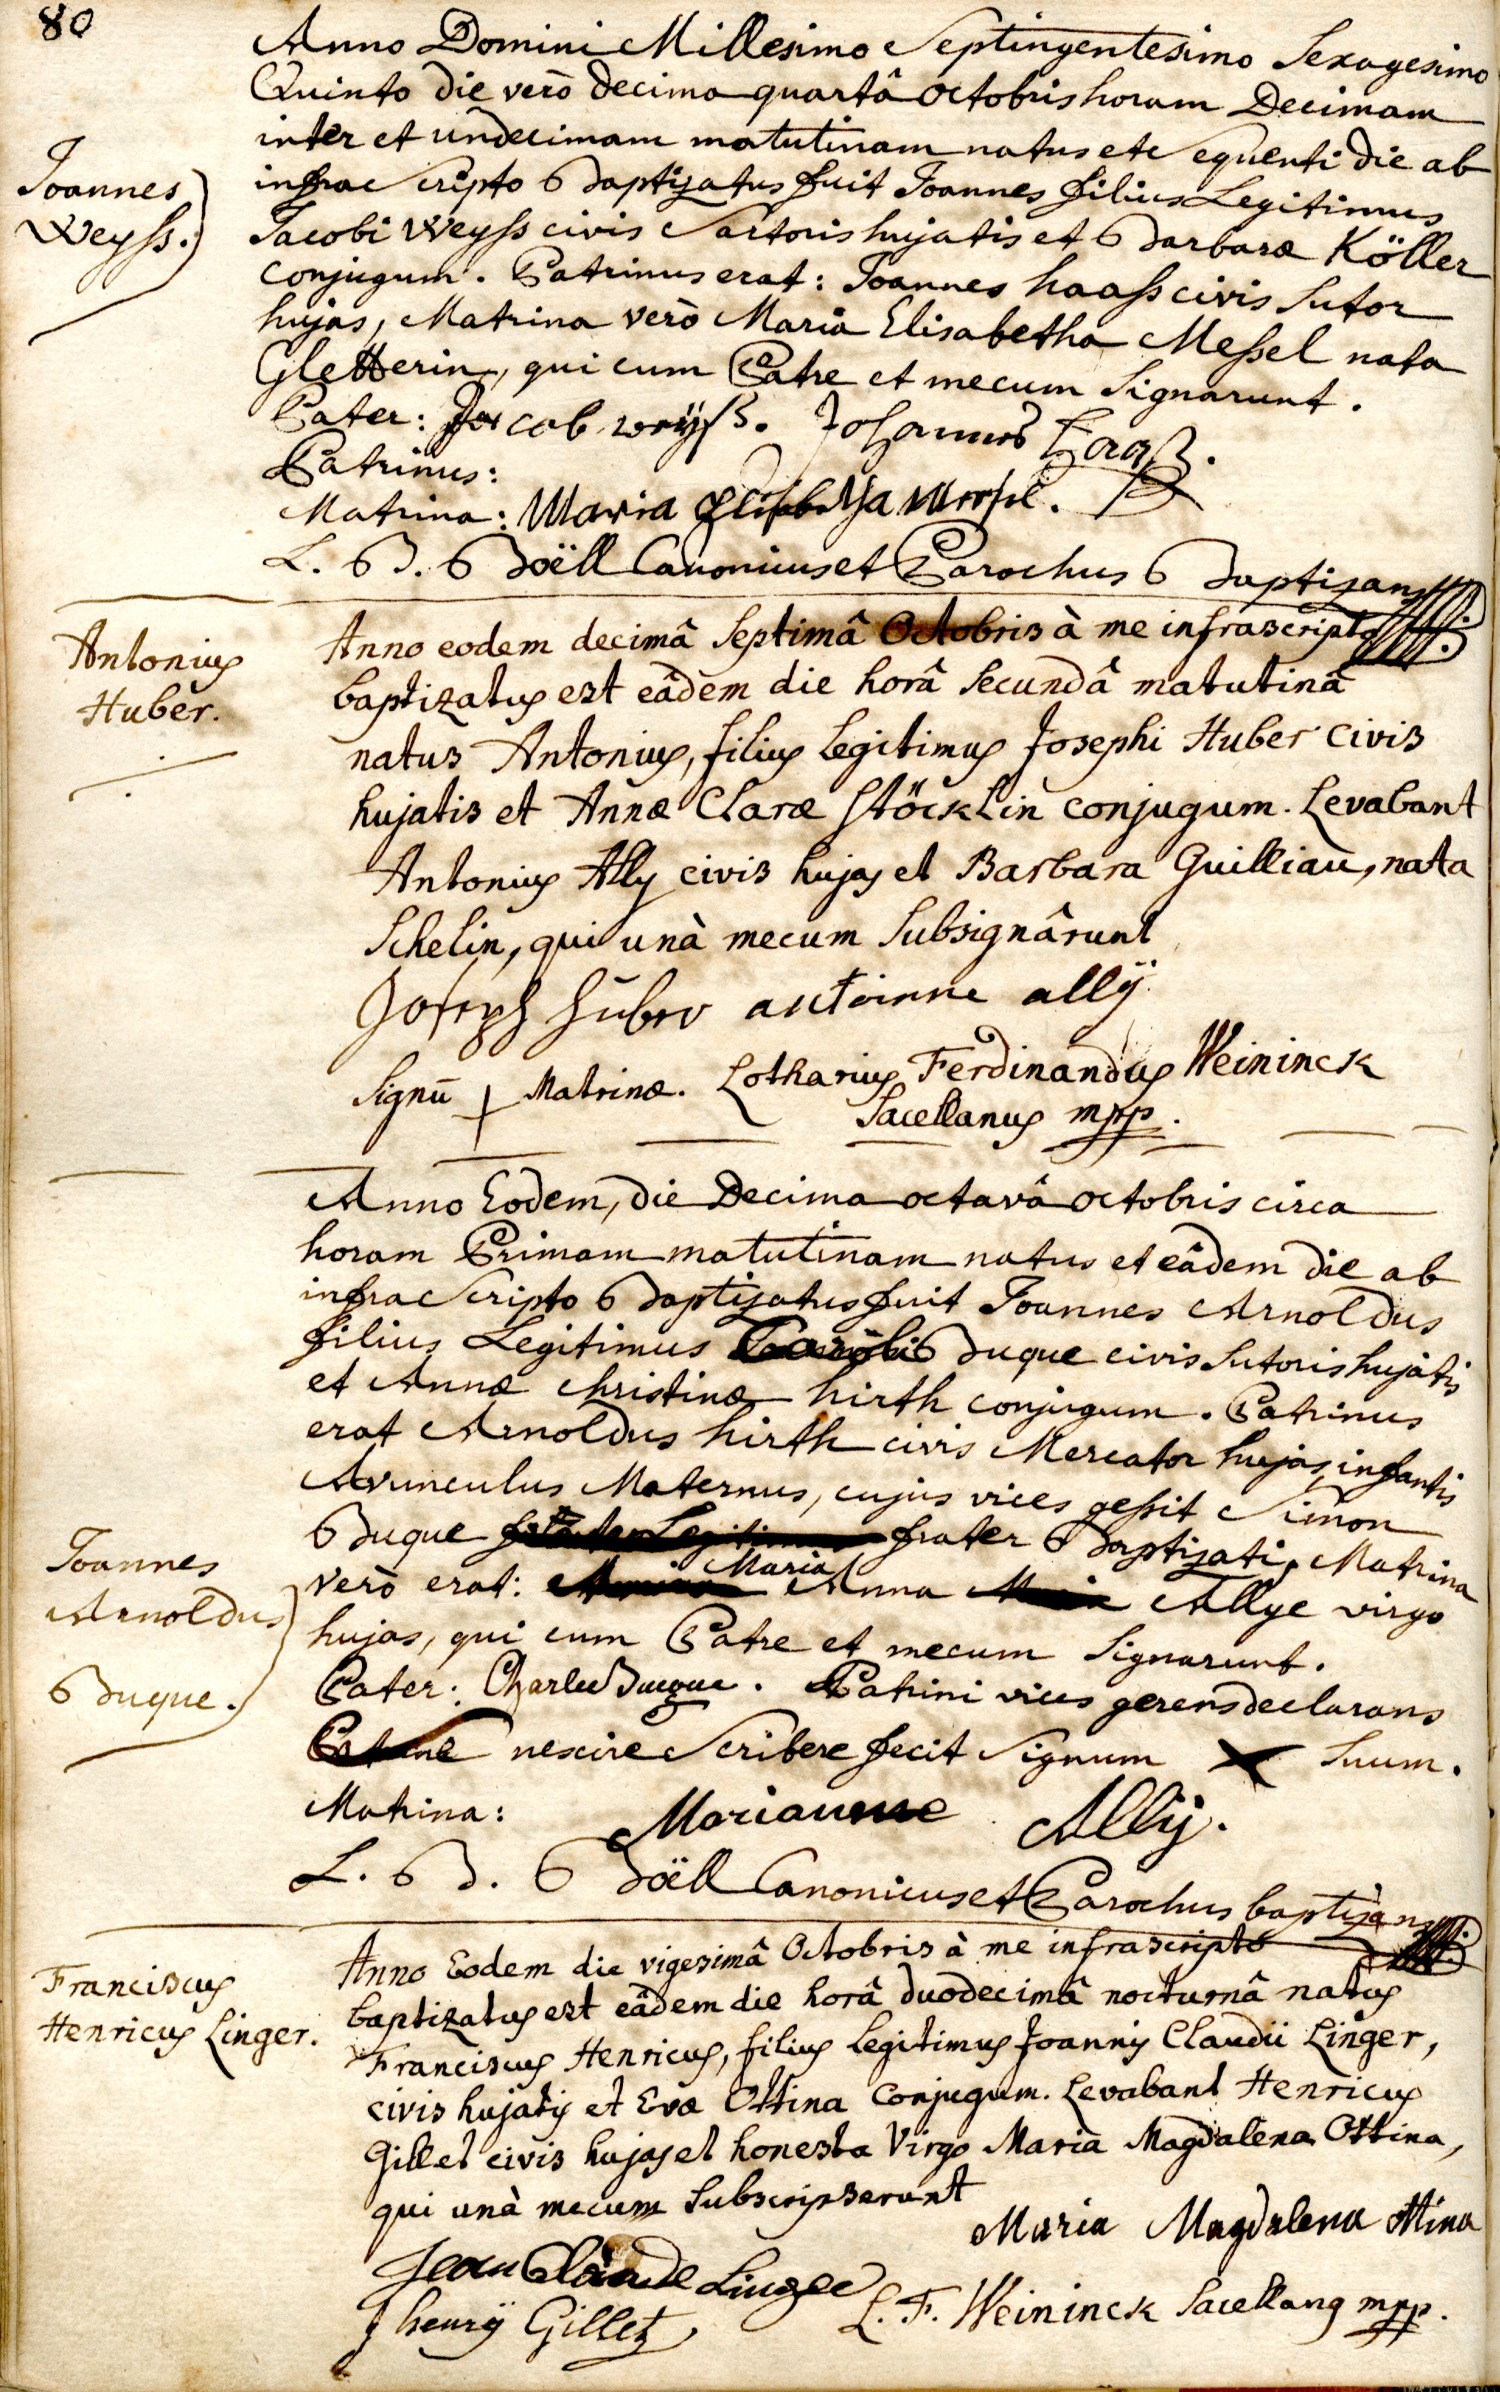 80
Anno Domini Millesimo Septingentesimo Sexagesimo
Quinto die verò decima quartâ octobris horam Decimam
inter et undecimam matutinam natus et sequenti die ab
Joannes
Weyss.
infrascripto Baptizatus fuit Joannes filius Legitimus
Jacobi Weyss civis Sartoris hujatis et Barbaræ Köller
conjugum. Patrinus erat: Joannes haass civis Sutor
hujas, Matrina verò Maria Elisabetha Messel nata
Gletterin, qui cum Patre et mecum Signarunt.
Pater: Jacob weyß. Johannes Haaß.
Patrinus:
Matrina: Maria Elisabetha Messel.
L. B. Boëll Canonicus et Parochus Baptizans
Antonius
Huber.
Anno eodem decimâ Septimâ Octobris à me infrascripto
baptizatus est eâdem die horâ Secundâ matutinâ
natus Antonius, filius legitimus Josephi Huber civis
hujatis et Annæ Claræ Stöcklin conjugum. Levabant
Antonius Ally civis hujas et Barbara Guilliau, nata
Schelin, qui unà mecum Subsignârunt
Joseph Huber antoinne allÿ
Signū + Matrinæ. Lotharius Ferdinandus Weininck
Sacellanus mpp.
Anno Eodem, die Decima octavâ octobris circa
horam Primam matutinam natus et eâdem die ab
infrascripto Baptizatus fuit Joannes Arnoldus
filius Legitimus Caroli Buque civis Sutoris hujatis
et Annæ Christinæ hirth conjugum. Patrinus
erat Arnoldus hirth civis Mercator hujas, infantis
Avunculus Maternus, cujus vices gessit Simon
Buque frater Baptizati, Matrina
Joannes
Arnoldus
Buque.
verò erat: Maria Anna Allye virgo
hujas, qui cum Patre et mecum Signarunt.
Pater: Charle Buque. Patrini vices gerens declarans
nescire Scribere fecit Signum X Suum.
Matrina: Marianne Allij.
L. B. Boëll Canonicus et Parochus baptizans
Franciscus
Henricus Linger.
Anno Eodem die vigesimâ Octobris à me infrascripto
baptizatus est eâdem die horâ duodecimâ nocturnâ natus
Franciscus Henricus, filius legitimus Joannis Claudii Linger,
civis hujatis et Evæ Ottina Conjugum. Levabant Henricus
Gillet civis hujas et honesta Virgo Maria Magdalena Ottina,
qui unà mecum Subscripserunt
Maria Magdalena ottina
Jean Claude Linger
henrÿ Gillet
L. F. Weininck Sacellanus mpp.